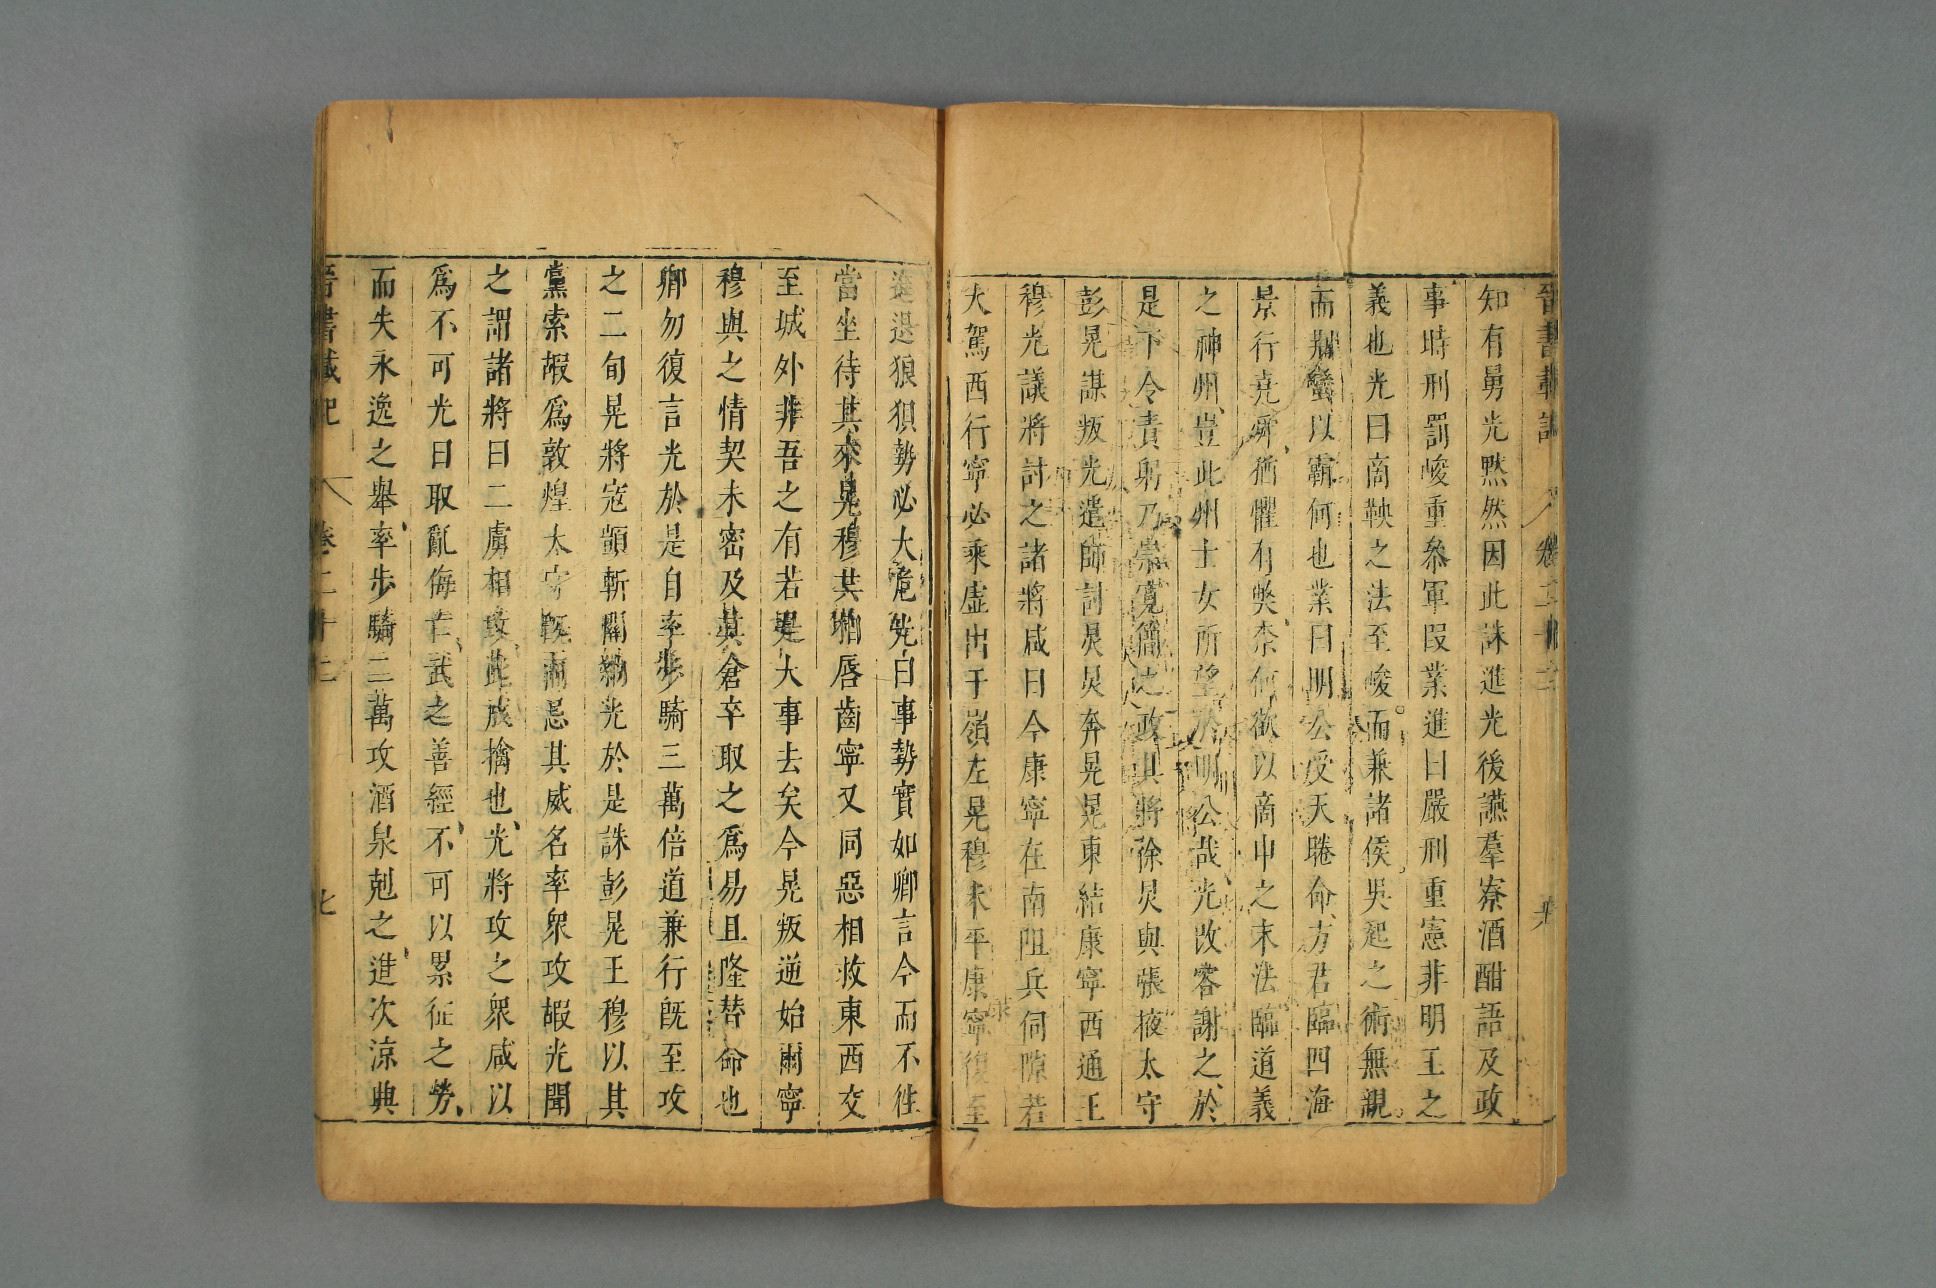 晉書載記 卷二十二
知有舅光黙然因此誅進光後讌羣寮酒酣語及政
事時刑罰峻重叅軍段業進曰嚴刑重憲非明王之
義也光曰商鞅之法至峻而兼諸侯吳起之術無親
而荆蠻以霸何也業曰明公受天眷命方君臨四海
景行堯舜猶懼有弊柰何欲以商申之末法臨道義
之神州豈此州士女所望於明公哉光改容謝之於
是下令責躬乃崇寬簡之政其將徐炅與張掖太守
彭晃謀叛光遣師討炅炅奔晃晃東結康寧西通王
穆光議將討之諸將咸曰今康寧在南阻兵伺隙若
大駕西行寧必乘虛出于嶺左晃穆未平康寧復至
進退狼狽勢必大危光曰事勢實如卿言今而不徃
當坐待其來晃穆共相唇齒寧又同惡相救東西交
至城外非吾之有若是大事去矣今晃叛逆始爾寧
穆與之情契未密及其倉卒取之爲易且隆替命也
卿勿復言光於是自率步騎三萬倍道兼行旣至攻
之二旬晃將寇顗斬關納光於是誅彭晃王穆以其
黨索嘏爲敦煌太守旣而忌其威名率衆攻嘏光聞
之謂諸將曰二虜相攻此成擒也光將攻之衆咸以
爲不可光曰取亂侮亡武之善經不可以累征之勞
而失永逸之舉率步騎二萬攻酒泉剋之進次涼典
晉書載記 卷二十二 七